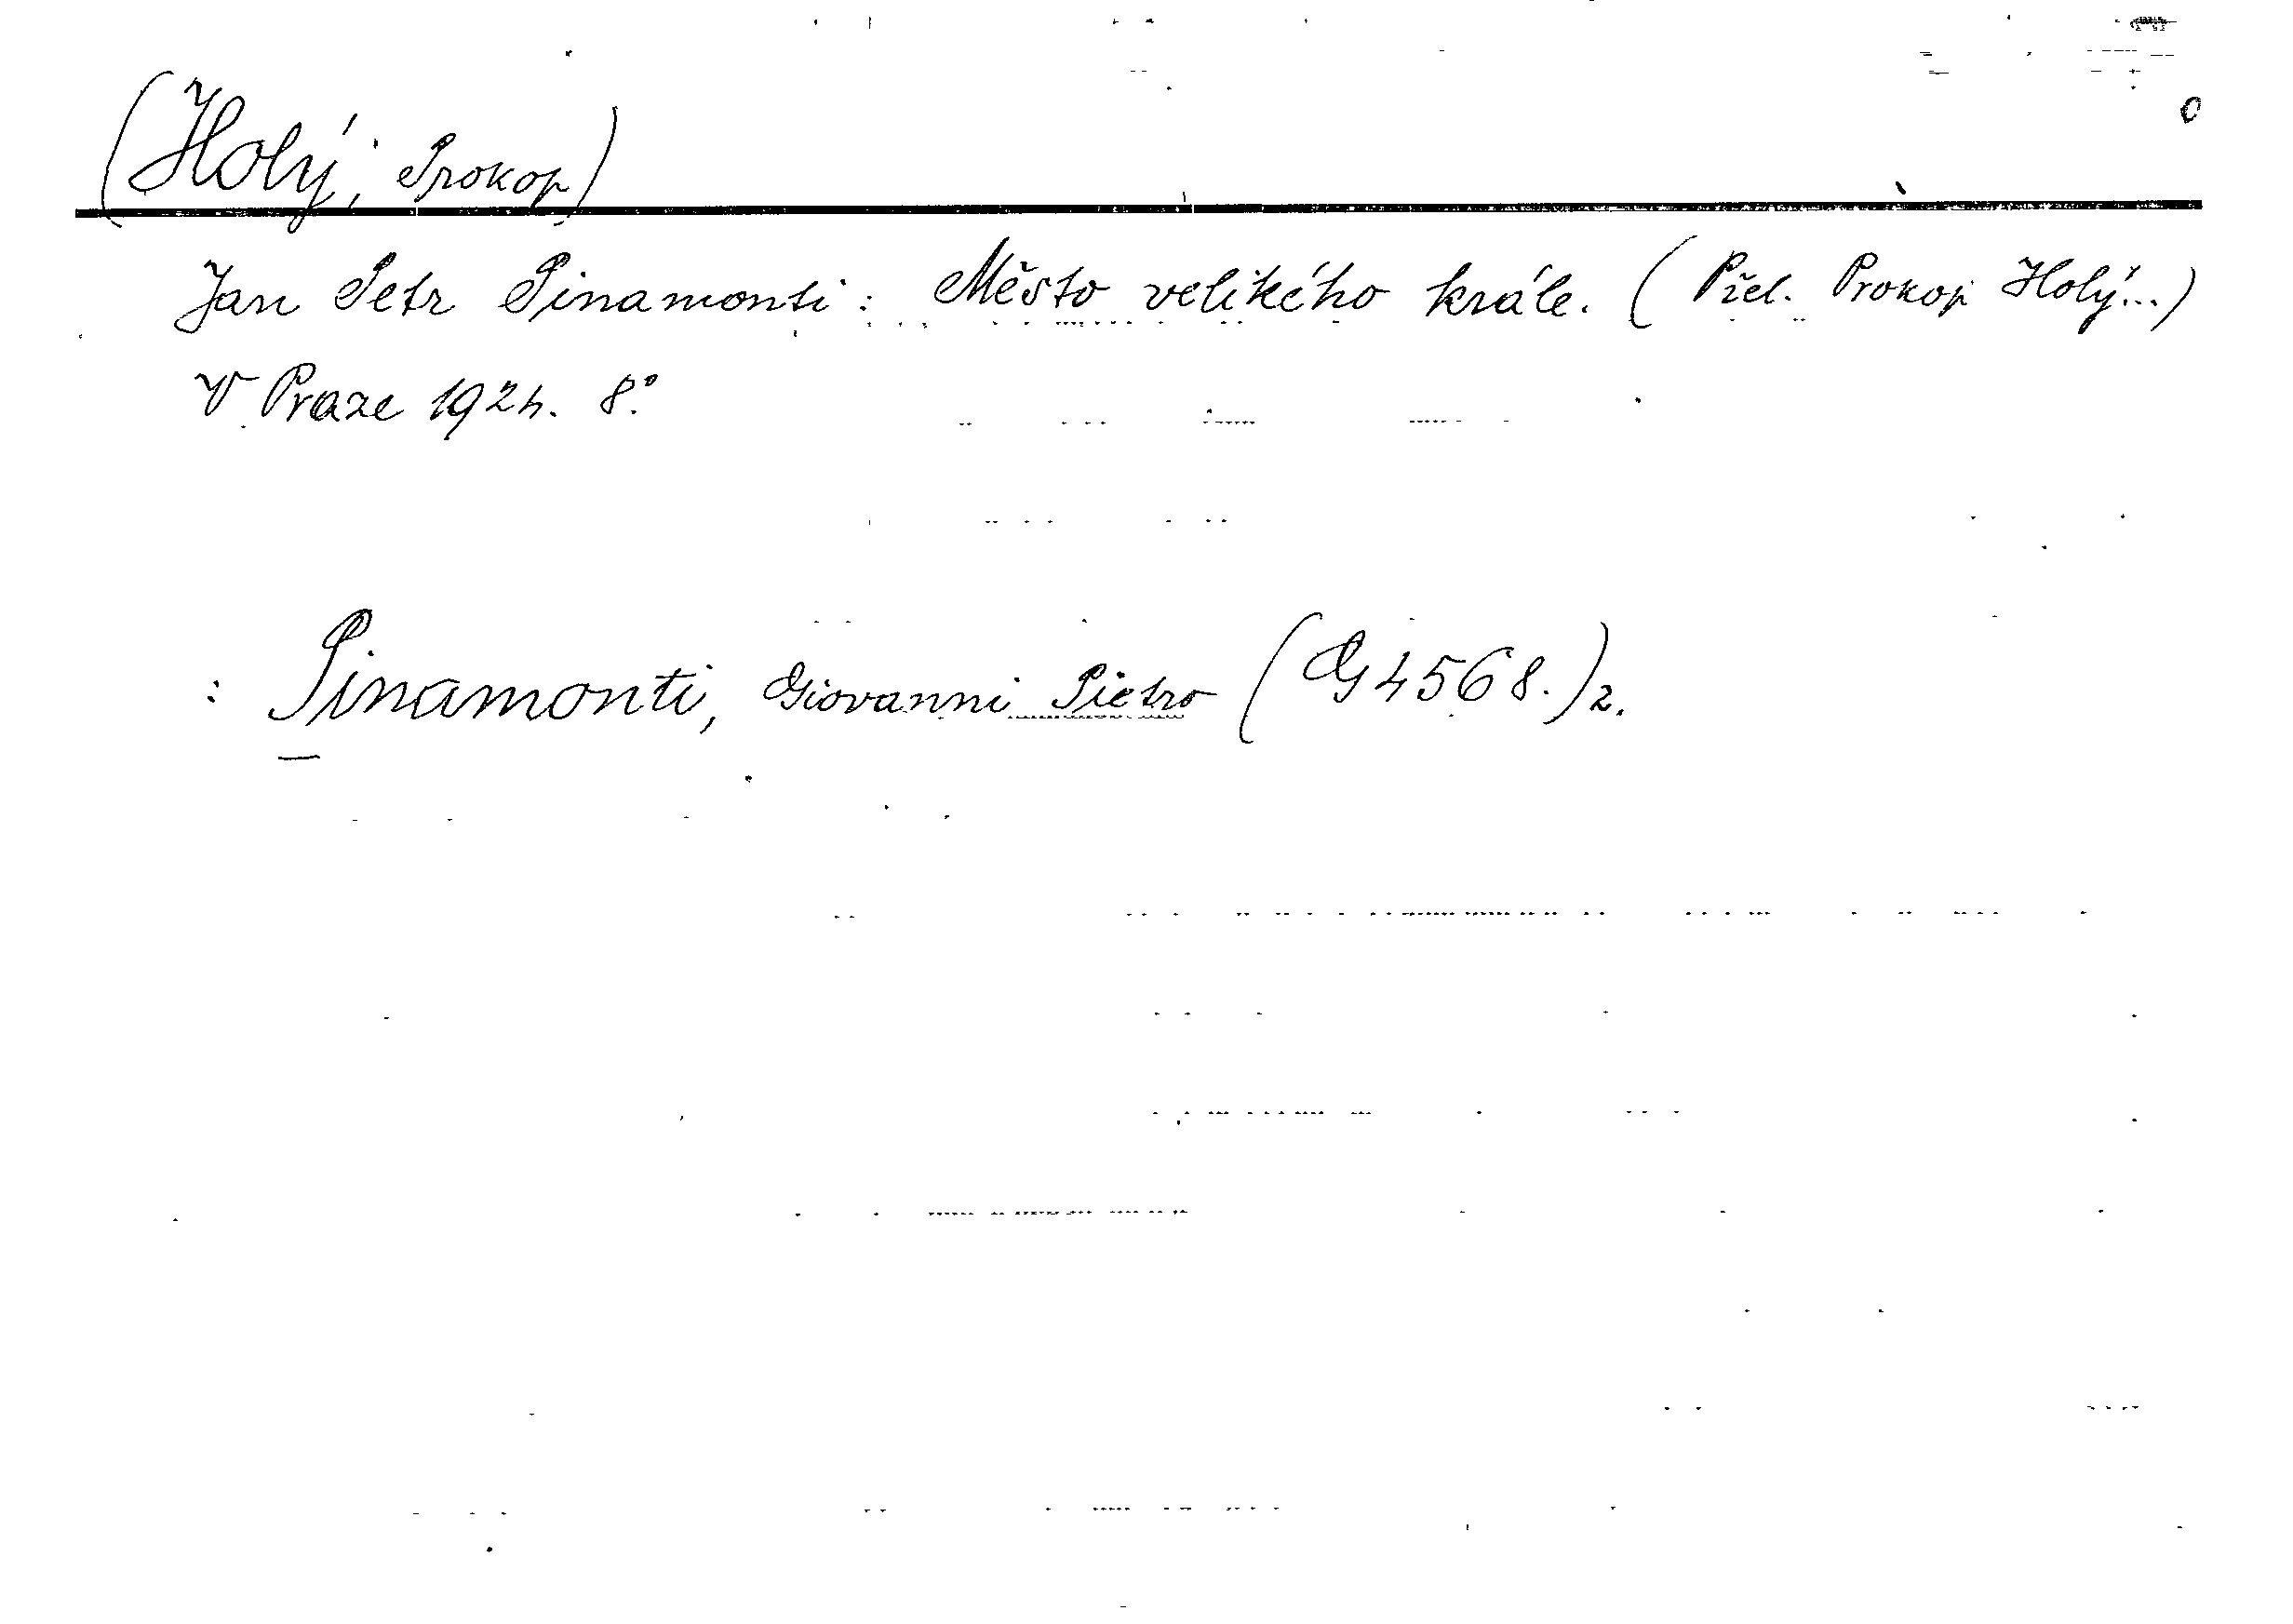 (Holý, Prokop)
Jan Petr Pinamonti: Město velikého krále. (Přel. Prokop Holý...)
V Praze 1924. 8°.
: Pinamonti, Giovanni Pietro (G 4568.) 2.